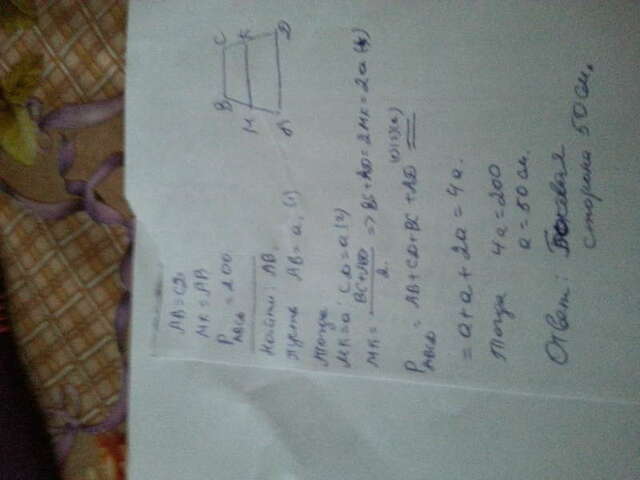 AB = CD
MK = AB
P ABCD = 200
Найти: AB.
Пусть AB = a, (1)
Тогда
MK = a; CD = a (2)
MK = BC+AD / 2 => BC + AD = 2MK = 2a (3)
P ABCD = AB + CD + BC + AD (1)(2)(3) =
= a + a + 2a = 4a.
Тогда 4a = 200
a = 50 см.
Ответ: Боковая
сторона 50 см.
B C
M K
A D